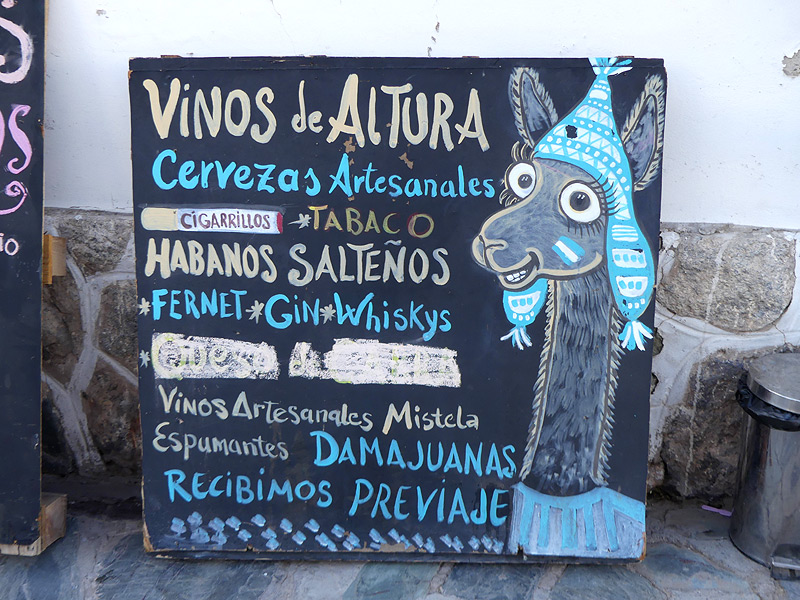 VINOS de ALTURA
Cervezas Artesanales
CIGARRILLOS * TABACO
HABANOS SALTEÑOS
* FERNET * GIN * WHISKYS
* Queso de
VINOS ARTESANALES MISTELA
ESPUMANTES DAMAJUANAS
RECIBIMOS PREVIAJE